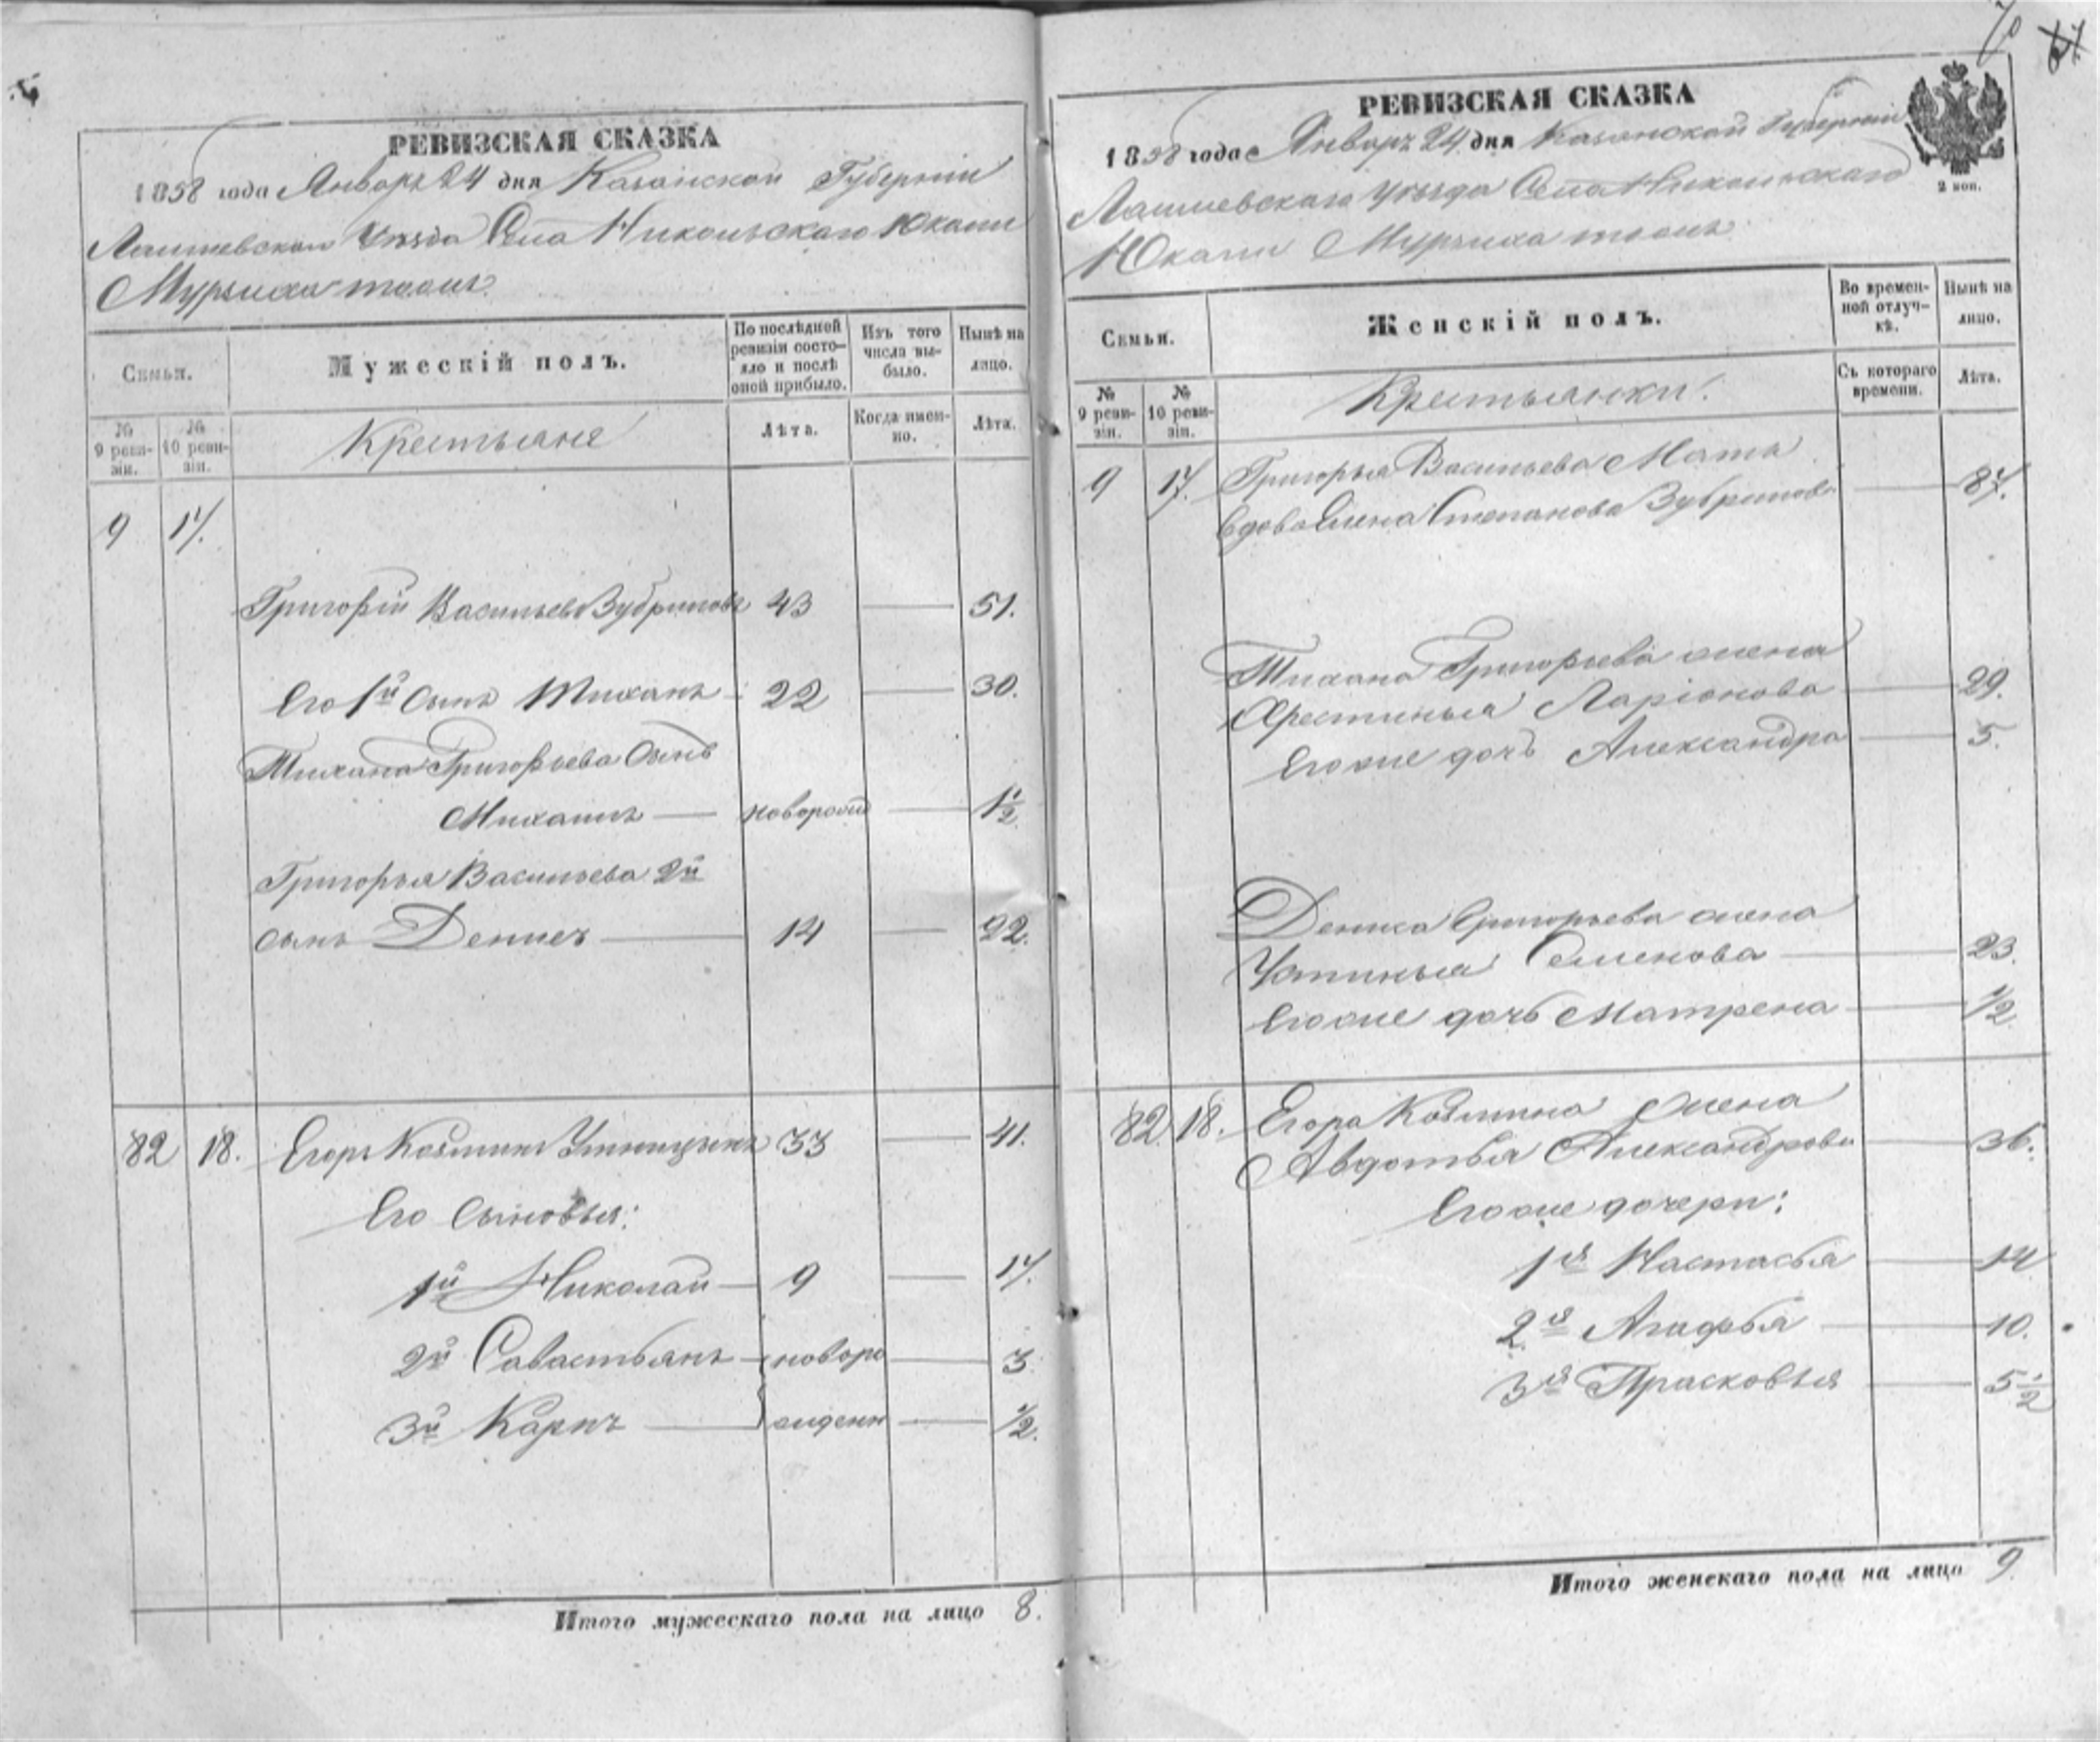 РЕВИЗСКАЯ СКАЗКА
1858 года Январь 24 дня Казанской Губерніи
Лаишевскаго Уѣзда Села Никольскаго Юкачи
Мурзиха тожъ.
Семьи.
Мужескій полъ.
По послѣдней ревизіи состояло и послѣ оной прибыло.
Изъ того числа выбыло.
Нынѣ на лицо.
№ 9 ревизіи.
№ 10 ревизіи.
Крестьяне
Лѣта.
Когда именно.
Лѣта.
9 17.
Григорій Васильевъ 43 51.
Его 1й сынъ Тиханъ 22 30.
Тихана Григорьева сынъ
Михаилъ новорожд 1 1/2
Григорья Васильева 2й
сынъ Денисъ 14 22.
82 18. Егоръ Козминъ 33 41.
Его сыновья:
1й Николай 9 17.
2й Савастьянъ новоро 3
3й Карпъ жденн 1/2.
Итого мужескаго пола на лицо 8.
70
РЕВИЗСКАЯ СКАЗКА
1858 года Январь 24 дня Казанской Губерніи
2 коп.
Лаишевскаго Уѣзда Села Никольскаго
Юкачи Мурзиха тожъ
Семьи.
Женскій полъ.
Во временной отлучкѣ.
Нынѣ на лицо.
№ 9 ревизіи.
№ 10 ревизіи.
Крестьянки.
Съ котораго времени.
Лѣта.
9 17. Григорья Васильева Мать
вдова Елена Степанова 87.
Тихана Григорьева жена
Хрестинья Ларіонова 29.
Его же дочь Александра 5.
Дениса Григорьева жена
Устинья Семенова 23.
Его же дочь Матрена 1/2
82 18. Егора Козмина жена
Авдотья Александрова 36.
Его же дочери:
1я Настасья 14
2я Агафья 10.
3я Прасковья 5 1/2
Итого женскаго пола на лицо 9